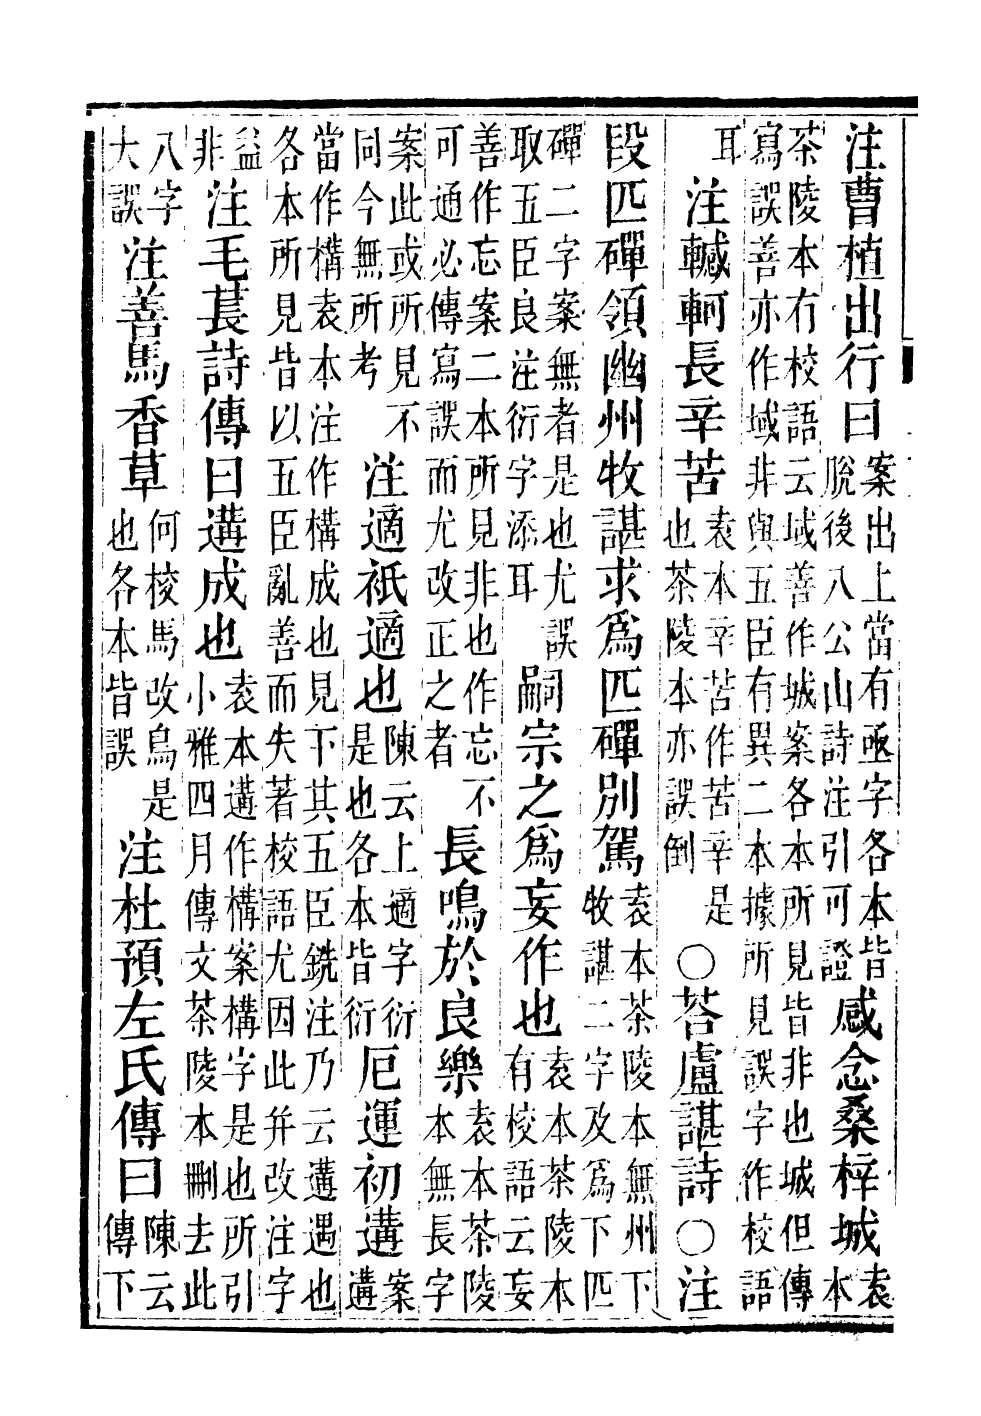 注曹植出行曰案出上當有亟字各本皆脫後八公山詩注引可證感念桑梓城袁本
茶陵本有校語云域善作城案各本所見皆非也城但傳寫誤善亦作域非與五臣有異二本據所見誤字作校語
耳注轗軻長辛苦袁本辛苦作苦辛是也茶陵本亦誤倒○荅盧諶詩○注
段匹磾領幽州牧諶求爲匹磾別駕袁本茶陵本無州下牧諶二字及爲下匹
磾二字案無者是也尤誤取五臣良注衍字添耳嗣宗之爲妄作也袁本茶陵本有校語云妄
善作忘案二本所見非也作忘不可通必傳寫誤而尤改正之者長鳴於良樂袁本茶陵本無長字
案此或所見不同今無所考注適祇適也陳云上適字衍是也各本皆衍厄運初遘案遘
當作構袁本注作構成也見下其五臣銑注乃云遘遇也各本所見皆以五臣亂善而失著校語尤因此并改注字
益非注毛萇詩傳曰遘成也袁本遘作構案構字是也所引小雅四月傳文茶陵本刪去此
八字大誤注善馬香草何校馬改鳥是也各本皆誤注杜預左氏傳曰陳云傳下